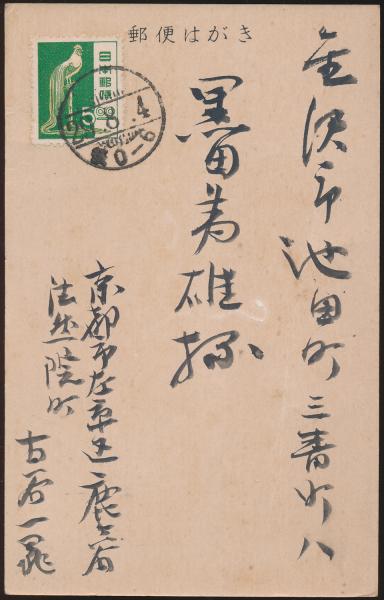 郵便はがき
日本郵便
5.00
25.8.4
后0-6
金沢市池田町三番町八
黒田善雄様
京都市左京区鹿ヶ谷
法然院町
古谷一晁